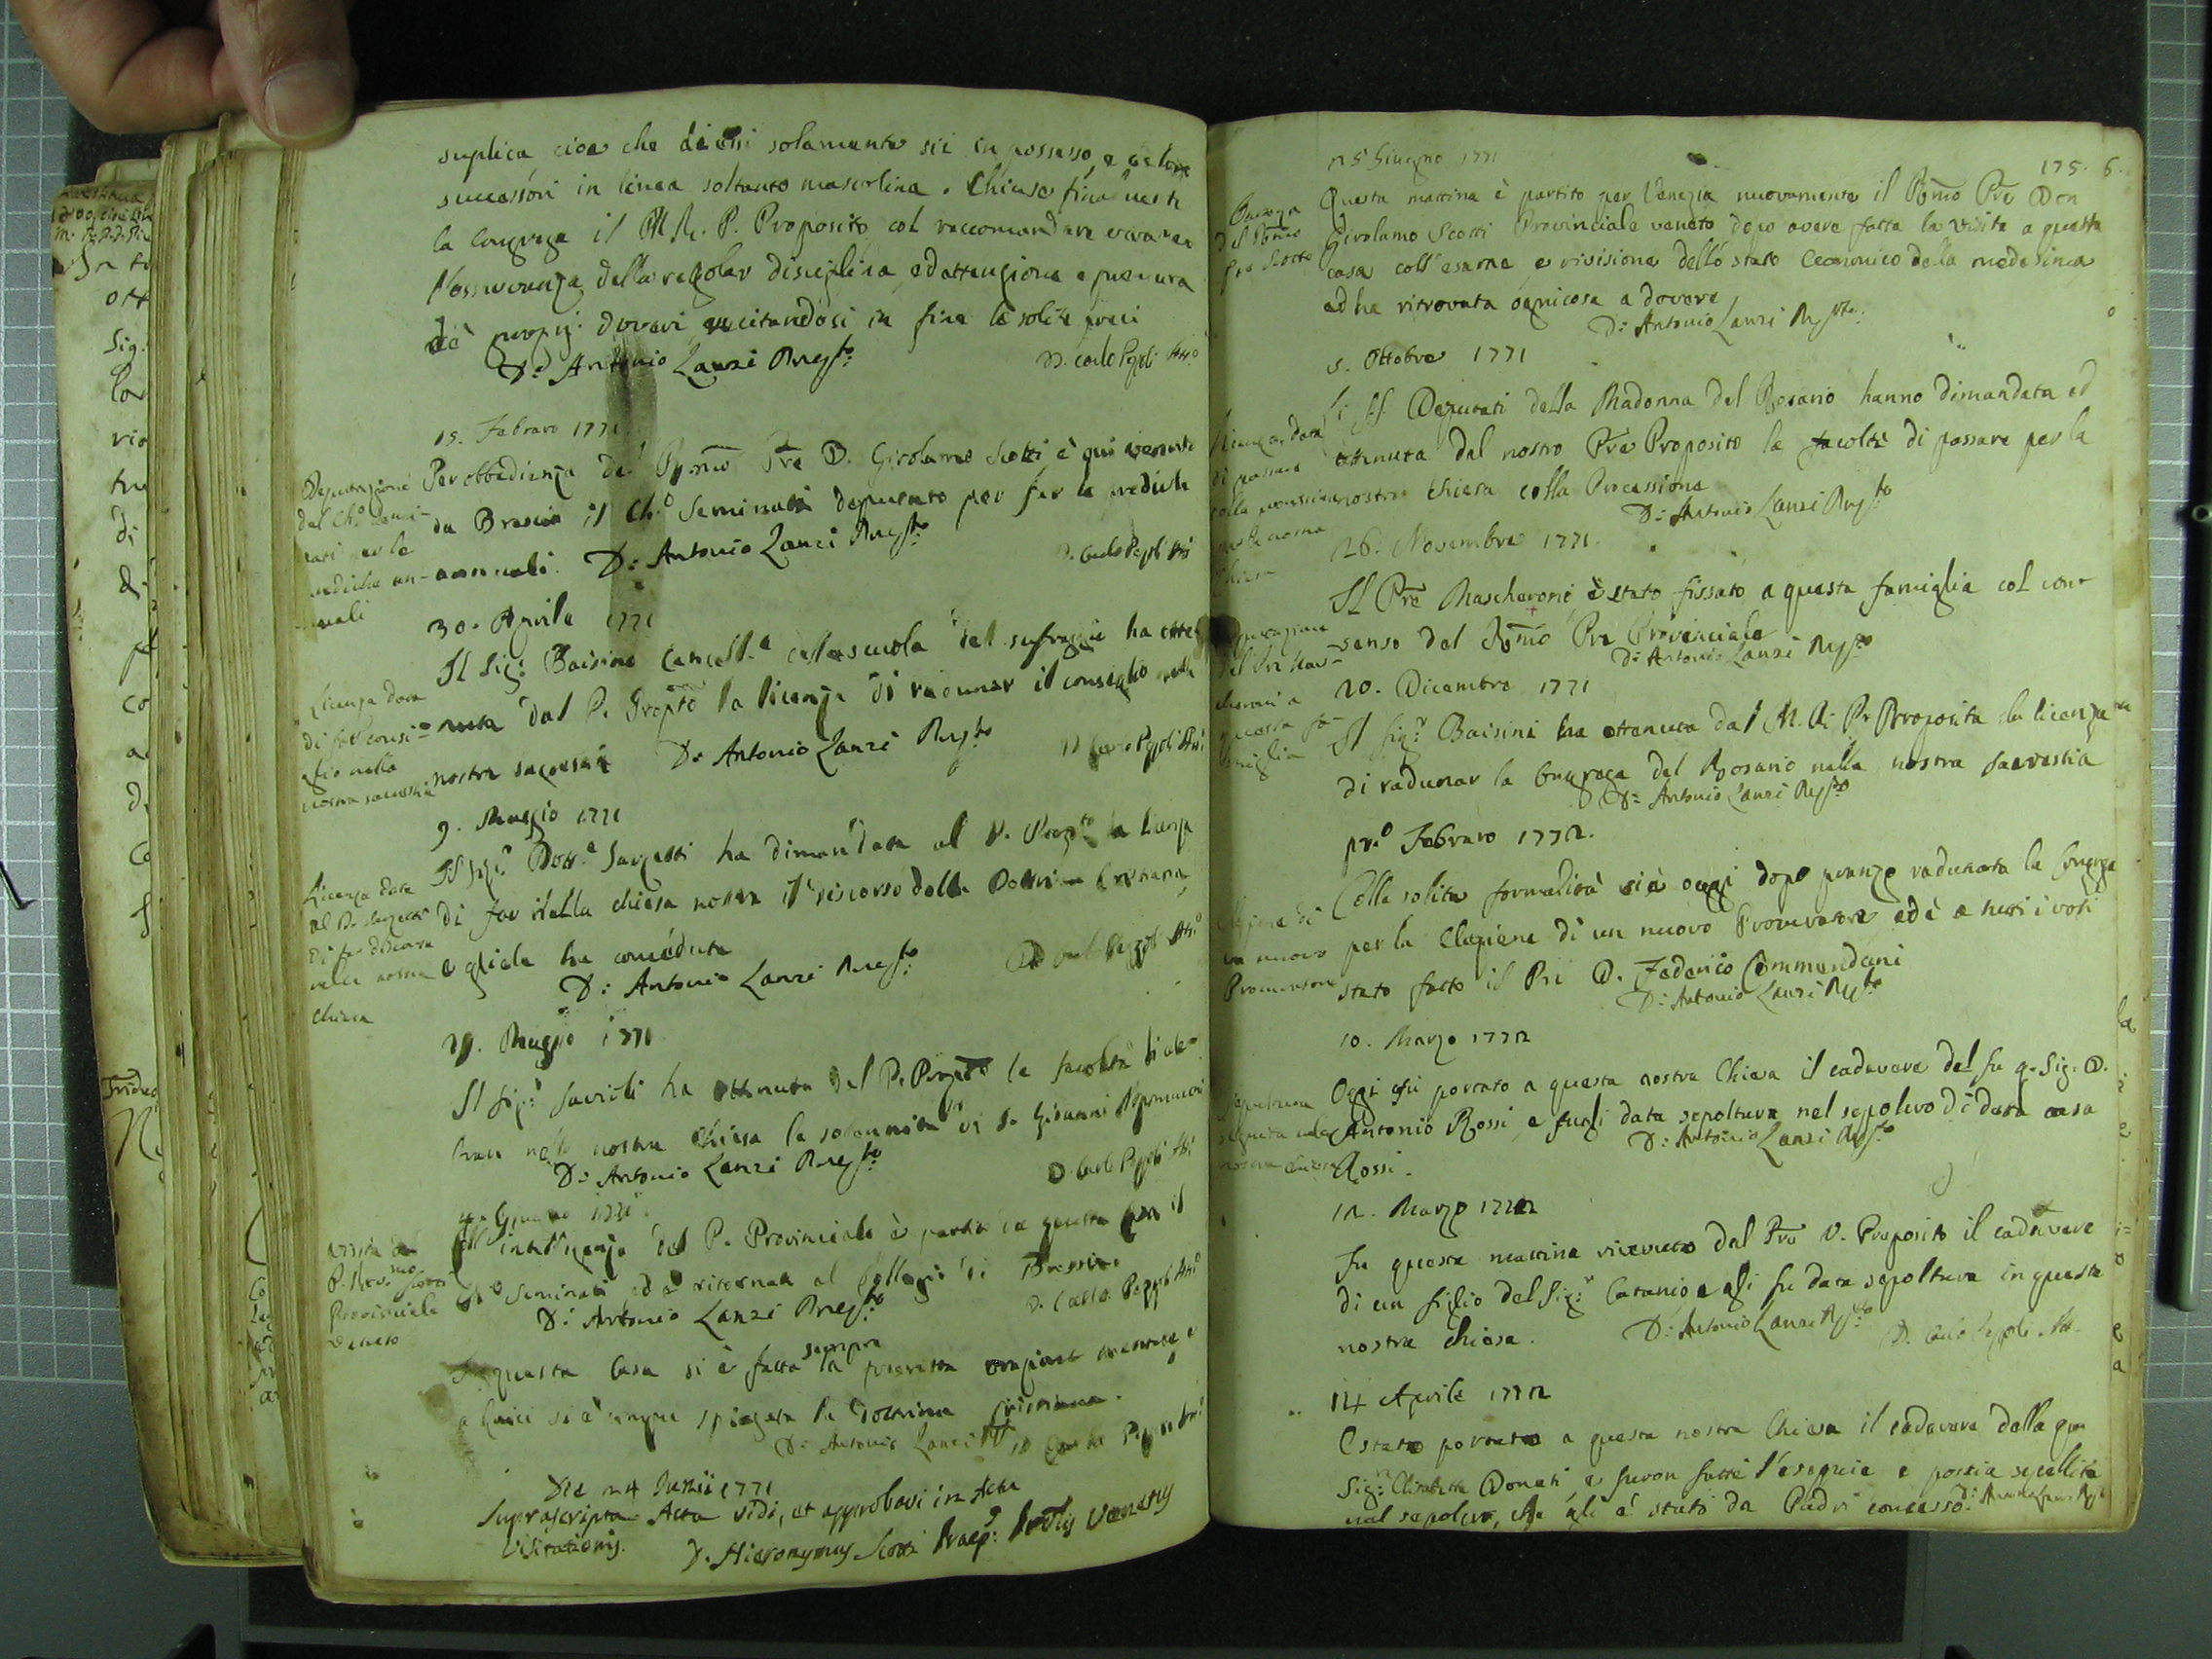 suplica cioe che di essi solamente sii in possesso, e de loro
successori in linea soltanto mascolina. Chiuse finalmente
la Congrega il M. R. P. Proposito col raccomandare
l'osservanza della regolar disciplina, ed attenzione e premura
de proprj doveri recitandosi in fine le solite preci
D: Antonio Lanzi Prep.to
D. Carlo Pezoli Att.o
15. Febraro 1771
Deputazione
del Ch.o Semi-
nati per le
prediche an-
nuali
Per obbedienza del Rmo Pre D. Girolamo Scotti è qui venuto
da Brescia il Ch.o Seminati deputato per far le prediche
annuali. D: Antonio Lanzi Prep.to
D. Carlo Pezoli Att.
30. Aprile 1771
Licenza data
di far consi-
glio nella
nostra sacrestia
Il Sig: Baisini Cancell.e della scuola del suffragio ha otte-
nuta dal P. Prop.to la licenza di radunar il consiglio nella
nostra sacrestia D: Antonio Lanzi Prep.to
D. Carlo Pezoli Att.
9. Maggio 1771
Licenza data
al D.
di far discorso
nella nostra
chiesa
Il Sig.r Dott.e ha dimandata al P. Prop.to la licenza
di far nella chiesa nostra il discorso della Dottrina Cristiana,
e gliela ha conceduta
D: Antonio Lanzi Prep.to
D. Carlo Pezzoli Att.o
29. Maggio 1771
Il Sig.r ha ottenuta dal P. Prop.to la facoltà di
nella nostra Chiesa la solennità di S. Giovanni Nepomuceno
D: Antonio Lanzi Prep.to
D. Carlo Pezoli Att.
4. Giugno 1771
Visita del
P. Rev.mo Scotti
Provinciale
Veneto
del P. Provinciale è partito da questa Casa il
Ch.o Seminati ed è ritornato al Collegio di Brescia
D: Antonio Lanzi Prep.to
D. Carlo Pezzoli Att.o
In questa Casa si è fatta sempre la prescritta orazione mentale, e
a laici si è sempre spiegata la Dottrina Cristiana.
D: Antonio Lanzi
Die 24 Junii 1771
Suprascripta Acta vidi, et approbavi in Actu
Visitationis.
D. Hieronymus Scotti Praep: Prov.lis Venetus
175. 6.
25 Giugno 1771
Partenza
del Rmo
Pre Scotti
Questa mattina è partito per Venezia nuovamente il Rmo Pre Don
Girolamo Scotti Provinciale veneto dopo avere fatta la visita a questa
casa coll'esame e rivisione dello stato Economico della medesima
ed ha ritrovata ogni cosa a dovere
D: Antonio Lanzi Prep.to
5. Ottobre 1771
Licenza data
di passare
colla processione
per la nostra
Chiesa
Li SS. Deputati della Madonna del Rosario hanno dimandata ed
ottenuta dal nostro Pre Proposito la facoltà di passare per la
nostra Chiesa colla Processione
D: Antonio Lanzi Prep.to
26. Novembre 1771.
Deputazione
del Pre Mas-
cheroni a
questa fa-
miglia
Il Pre Mascheroni è stato fissato a questa famiglia col con-
senso del Rmo Pre Provinciale
D: Antonio Lanzi Prep.to
20. Dicembre 1771
Il Sig.r Baisini ha ottenuta dal M. R. Pr Proposito la licenza
di radunar la Congrega del Rosario nella nostra sacrestia
D: Antonio Lanzi Prep.to
pr.o Febraro 1772.
Elezione di
un nuovo
Procuratore
Colla solita formalità si è oggi dopo pranzo radunata la Congrega
per la Elezione di un nuovo Procuratore ed è a tutti i voti
stato fatto il Pre D. Federico Commendoni
D: Antonio Lanzi Prep.to
10. Marzo 1772
Sepoltura
seguita nella
nostra Chiesa
Oggi fu portato a questa nostra Chiesa il cadavere del fu q. Sig. D.
Antonio Rossi, e fugli data sepoltura nel sepolcro di detta casa
Rossi.
D: Antonio Lanzi Prep.to
12. Marzo 1772
Fu questa mattina ricevuto dal Pre V. Proposito il cadavere
di un figlio del Sig.r Catanio e gli fu data sepoltura in questa
nostra chiesa.
D: Antonio Lanzi Prep.to
D. Carlo Pezzoli Att.
14 Aprile 1772
È stato portato a questa nostra Chiesa il cadavere della qm
Sig.ra Elisabetta Donati, e furon fatte l'esequie e poscia sepellita
nel sepolcro, che gli è stato da Padri concesso.